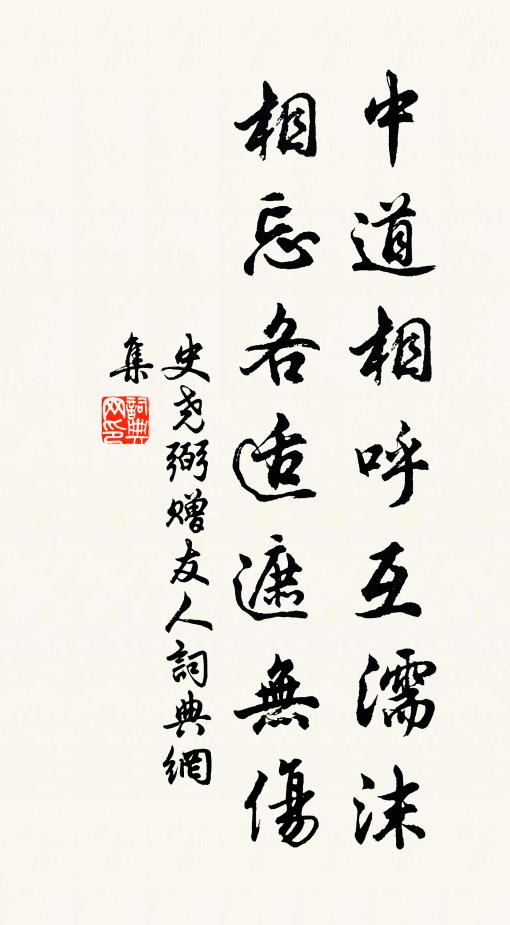 中道相呼互濡沫
相忘各适遮無傷
史尧弼赠友人詞典網
集
詞典
网印